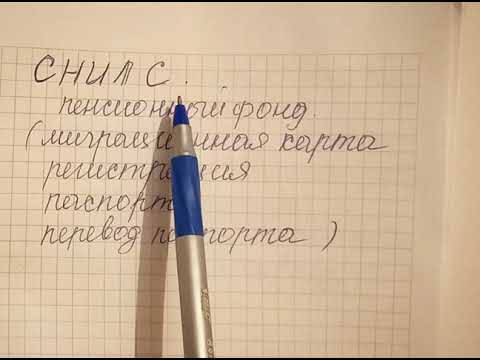 СНИЛС.
пенсионный фонд.
(миграционная карта
регистрация
паспорт
перевод паспорта)